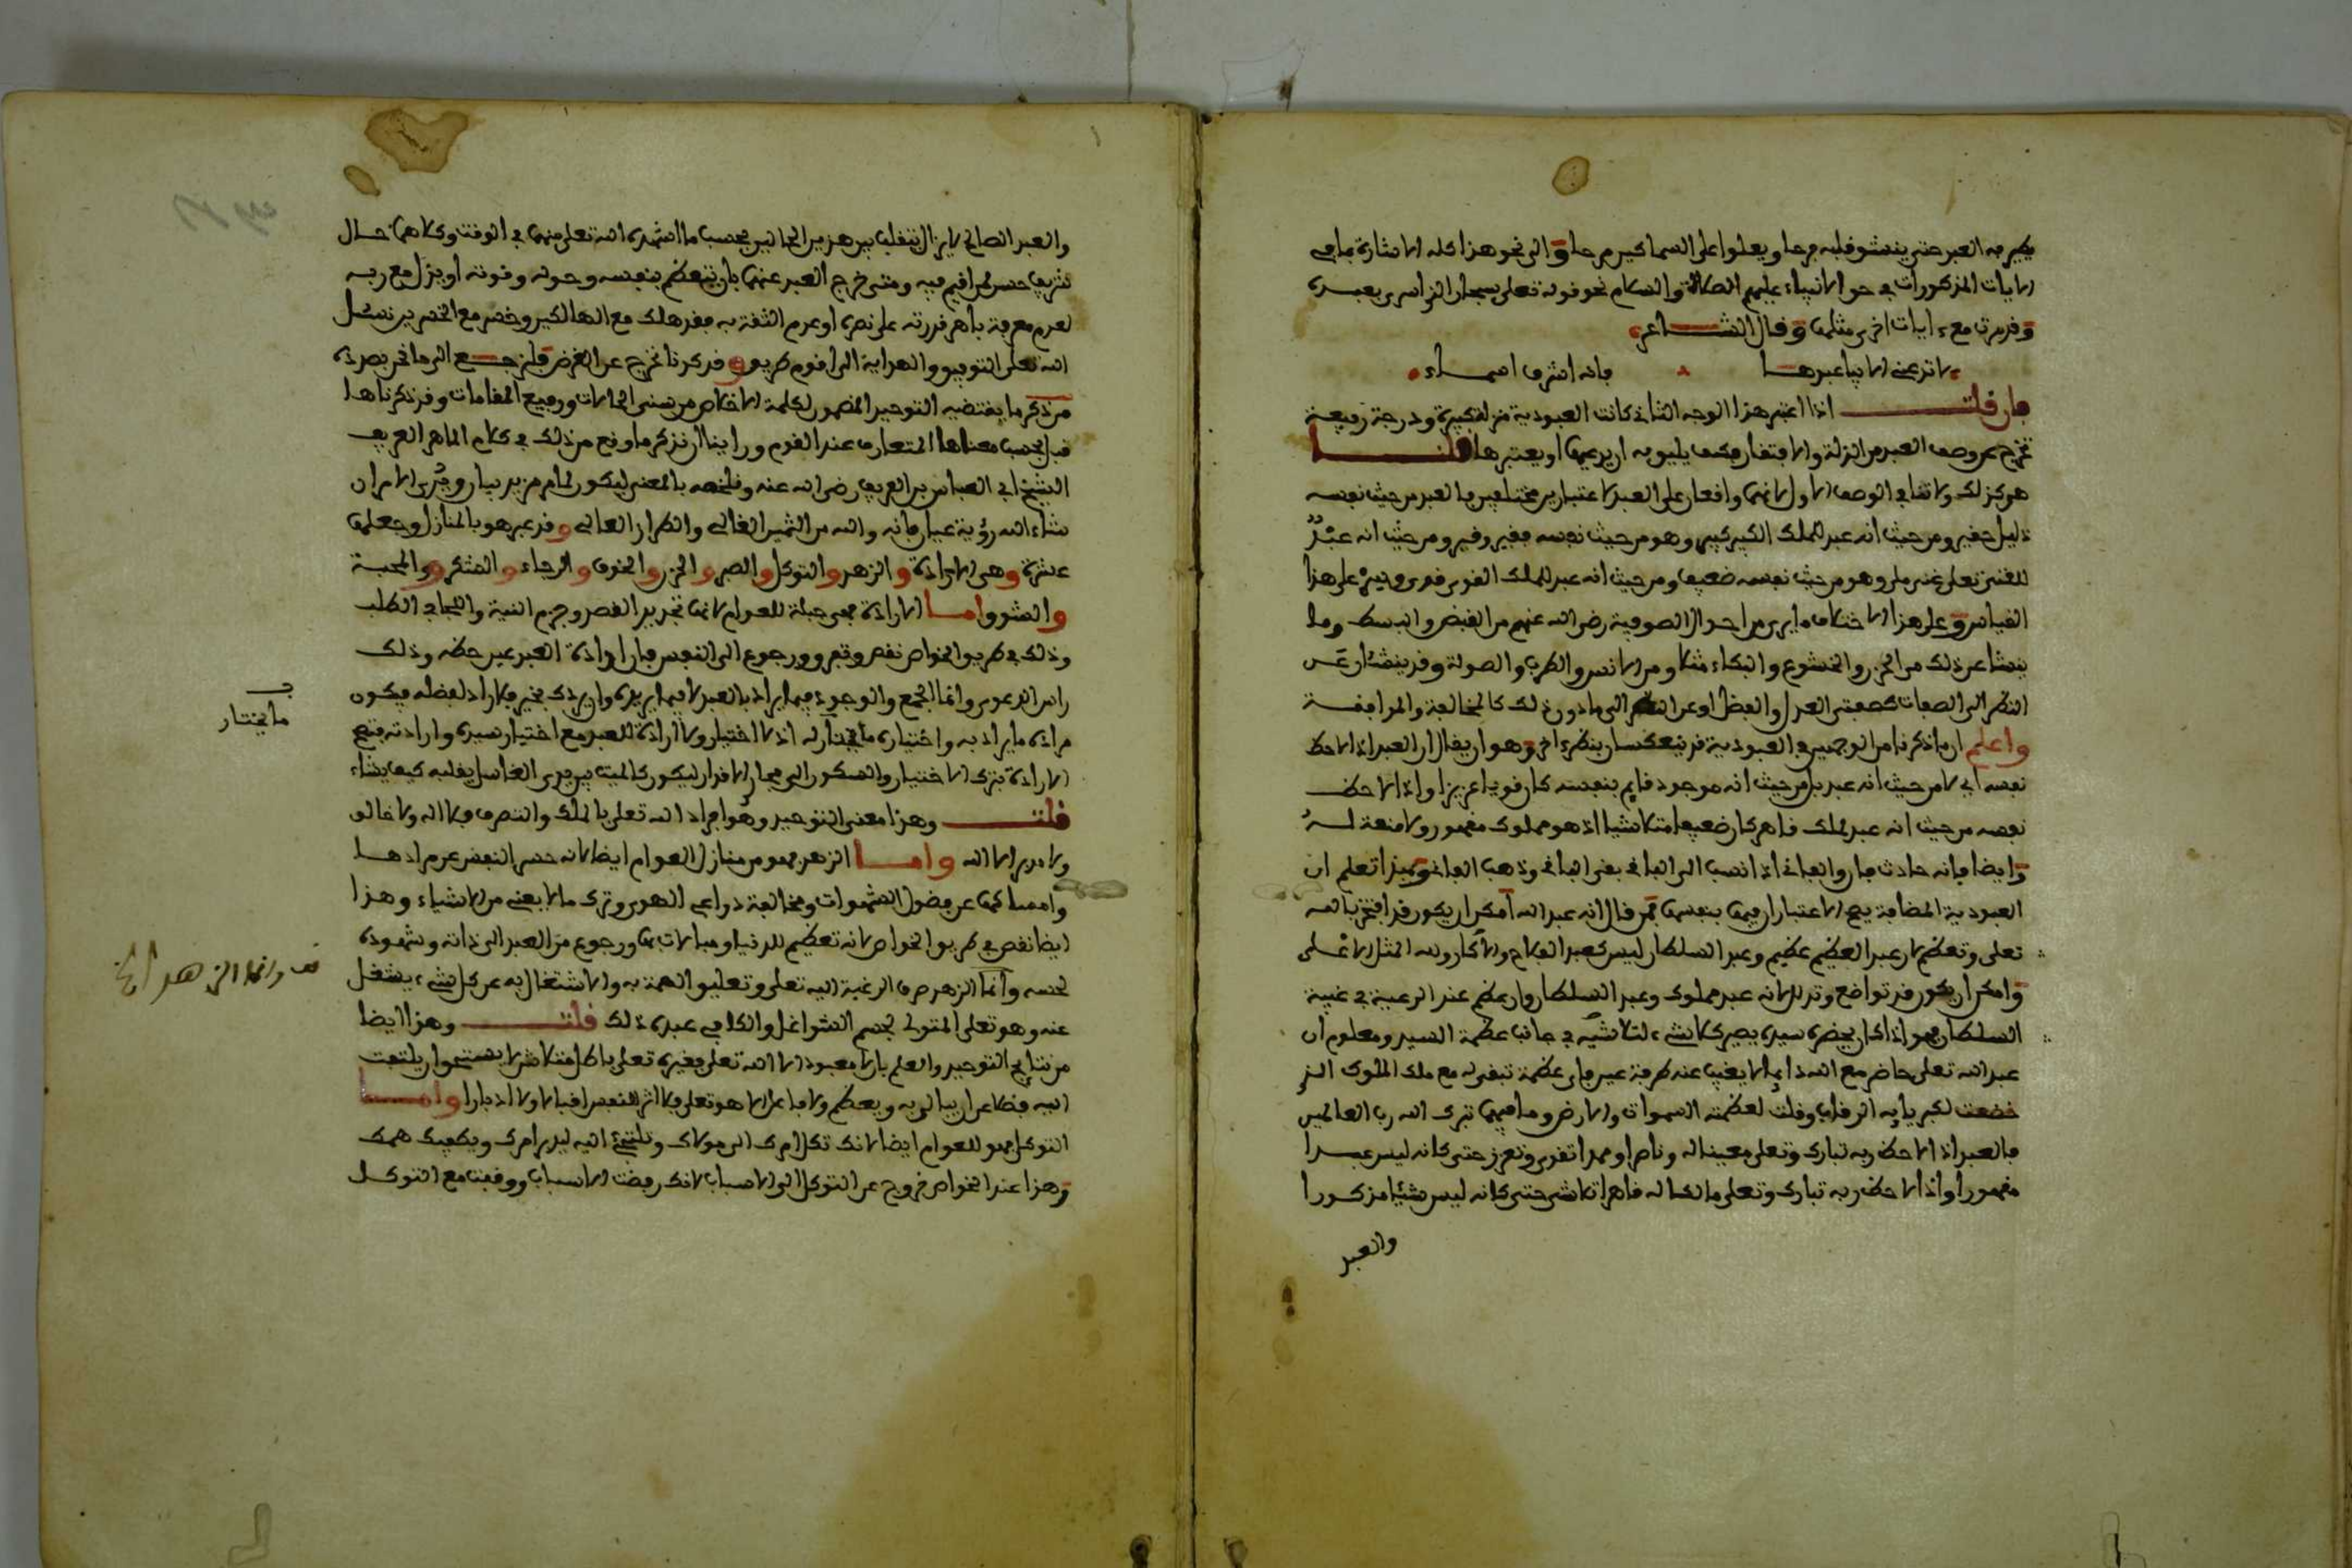 يطير به العبد حتى ينشو قلبه فرحا ويعلوا على السماكين مرحا والى نحو هذا كله الاشارة بما في
الايات المذكورات في حق الانبياء عليهم الصلاة والسلام نحو قوله تعلى سبحان الذي اسرى بعبده
وقد مرت مع ءايات اخرى مثلها وقال الشاعر
لا تدعني الا بيا عبدها فانه اشرف اسماء
فان قلت اذا اعتبر هذا الوجه الثاني كانت العبودية منزلة كبيرة ودرجة رفيعة
تخرج عن وصف العبد من الذلة والافتقار فكيف يليق به ان يدعيها او يعتبرها قلنا
هو كذلك ولا تنافي الوصف الاول لانهما واقعان على العبد لاعتبارين مختلفين فالعبد من حيث نفسه
ذليل حقير ومن حيث انه عبد للملك الكبير كبير وهو من حيث نفسه فقير وقير ومن حيث انه عبد
للغني تعلى غني ملي وهو من حيث نفسه ضعيف ومن حيث انه عبد للملك القوي قوي وقس على هذا
القياس وعلى هذا الاختلاف ما يرى من احوال الصوفية رضي الله عنهم من القبض والبسط وما
ينشا عن ذلك من الحزن والخشوع والبكاء مثلا ومن الانس والطرب والصولة وقد ينشئان عن
النظر الى الصفات كصفتي العدل والفضل او عن النظر الى ما دون ذلك كالمخالفة والموافقة
واعلم ان ما ذكرنا من الوجهين في العبودية قد ينعكسان بنظر ءاخر وهو ان يقال ان العبد اذا لاحظ
نفسه اي لا من حيث انه عبد بل من حيث انه موجود قايم بنفسه كان قويا عزيزا واذا لاحظ
نفسه من حيث انه عبد لملك قاهر كان ضعيفا متلاشيا اذ هو مملوك مقهور ولا منعة له
وايضا فانه حادث فان والفاني اذا انسب الى الباقي بقي الباقي وذهب الفاني وبهذا تعلم ان
العبودية المضافة يصح الاعتباران فيها بنفسها فمن قال انه عبد الله امكن ان يكون قد افتخر بالله
تعلى وتعظم لان عبد العظيم عظيم وعبد السلطان ليس كعبد الفلاح والاكار ولله المثل الاعلى
وامكن ان يكون قد تواضع وتذلل لانه عبد مملوك وعبد السلطان وان عظم عند الرعية في غيبة
السلطان فهو اذا كان بحضرة سيده يصير كلا شيء لتلاشيه في جانب عظمة السيد ومعلوم ان
عبد الله تعلى حاضر مع الله دايما لا يغيب عنه طرفة عين فاي عظمة تبقى له مع ملك الملوك الذي
خضعت لكبريايه الرقاب وقلت لعظمته السموات والارض وما فيهما تبرك الله رب العالمين
فالعبد اذا لاحظ ربه تبارك وتعلى معينا له وناصرا وممدا تقوى وتعزز حتى كانه ليس عبدا
مقهورا واذا لاحظ ربه تبارك وتعلى مالكا له قاهرا تلاشى حتى كانه ليس شيئا مذكورا
والعبد
والعبد الصالح لا يزال يتقلب بين هذين الحالين بحسب ما اشهده الله تعلى منهما في الوقت وكلاهما حال
شريف حسن لمن اقيم فيه ومتى خرج العبد عنهما بان يتعظم بنفسه وحوله وقوته او يذل مع ربه
لعدم معرفة باهر قدرته على نصره او عدم الثقة به فقد هلك مع الهالكين وخسر مع الخاسرين نسئل
الله تعلى التوفيق والهداية الى اقوم طريق وقد كدنا نخرج عن الغرض فلنرجع الى ما نحن بصدده
من ذكر ما يقتضيه التوحيد المضمون لكلمة الاخلاص من سني الحالات ورفيع المقامات وقد ذكرناها
قبل بحسب معناها المتعارف عند القوم وراينا ان نذكر ما وقع من ذلك في كلام الماهر العريف
الشيخ ابي العباس بن العريف رضي الله عنه ونلخصه بالمعنى ليكون لها مزيد بيان وترى الامر ان
شاء الله رؤية عيان فانه والله من الثمين الغالي والطراز العالي وقد عبر هو بالمنازل وجعلها
عشرة وهي الارادة والزهد والتوكل والصبر والحزن والخوف والرجاء والشكر والمحبة
والشوق واما الارادة فهي حيلة للعوام لانها تجريد القصد وجزم النية والجد في الطلب
وذلك في طريق الخواص نقص وتفرق ورجوع الى النفس فان ارادة العبد عين حظه وذلك
راس الدعوى وانما الجمع والوجود فيما يراد بالعبد لا فيما يريده وان يردك بخير فلا راد لفضله فيكون
مراده ما يراد به واختياره ما يختار له اذ لا اختيار ولا ارادة للعبد مع اختيار سيده وارادته فتصح
الارادة بترك الاختيار والسكون الى مجاري الاقدار ليكون كالميت بين يدي الغاسل يقلبه كيف يشاء
قلت وهذا معنى التوحيد وهو افراد الله تعلى بالملك والتصرف فلا اله ولا خالق
ولا مدبر الا الله واما الزهد فهو من منازل العوام ايضا لانه حبس النفس عن مرادها
وامساكها عن فضول الشهوات ومخالفة دواعي الهوى وترك ما لا يعني من الاشياء وهذا
ايضا نقص في طريق الخواص لانه تعظيم للدنيا ومبالات بها ورجوع من العبد الى ذاته وشهوده
لحسه وانما الزهد صرف الرغبة اليه تعلى وتعليق الهمة به والاشتغال به عن كل شيء يشغل
عنه وهو تعلى المتولي لحسم الشواغل والكافي عبده ذلك قلت وهذا ايضا
من نتايج التوحيد والعلم بان لا معبود الا الله تعلى فغيره تعلى باطل متلاش لا يستحق ان يلتفت
اليه فضلا عن ان يبالى به ويعظم ولا فاعل الا هو تعلى فلا اثر للنفس اقبالا ولا ادبارا واما
التوكل فهو للعوام ايضا لانك تكل امرك الى مولاك وتلتجئ اليه ليدبر امرك ويكفيك همك
وهذا عند الخواص خروج عن التوكل الى الاسباب لانك رفضت الاسباب ووقفت مع التوكل
ما يختار
قف وانما الزهد الخ